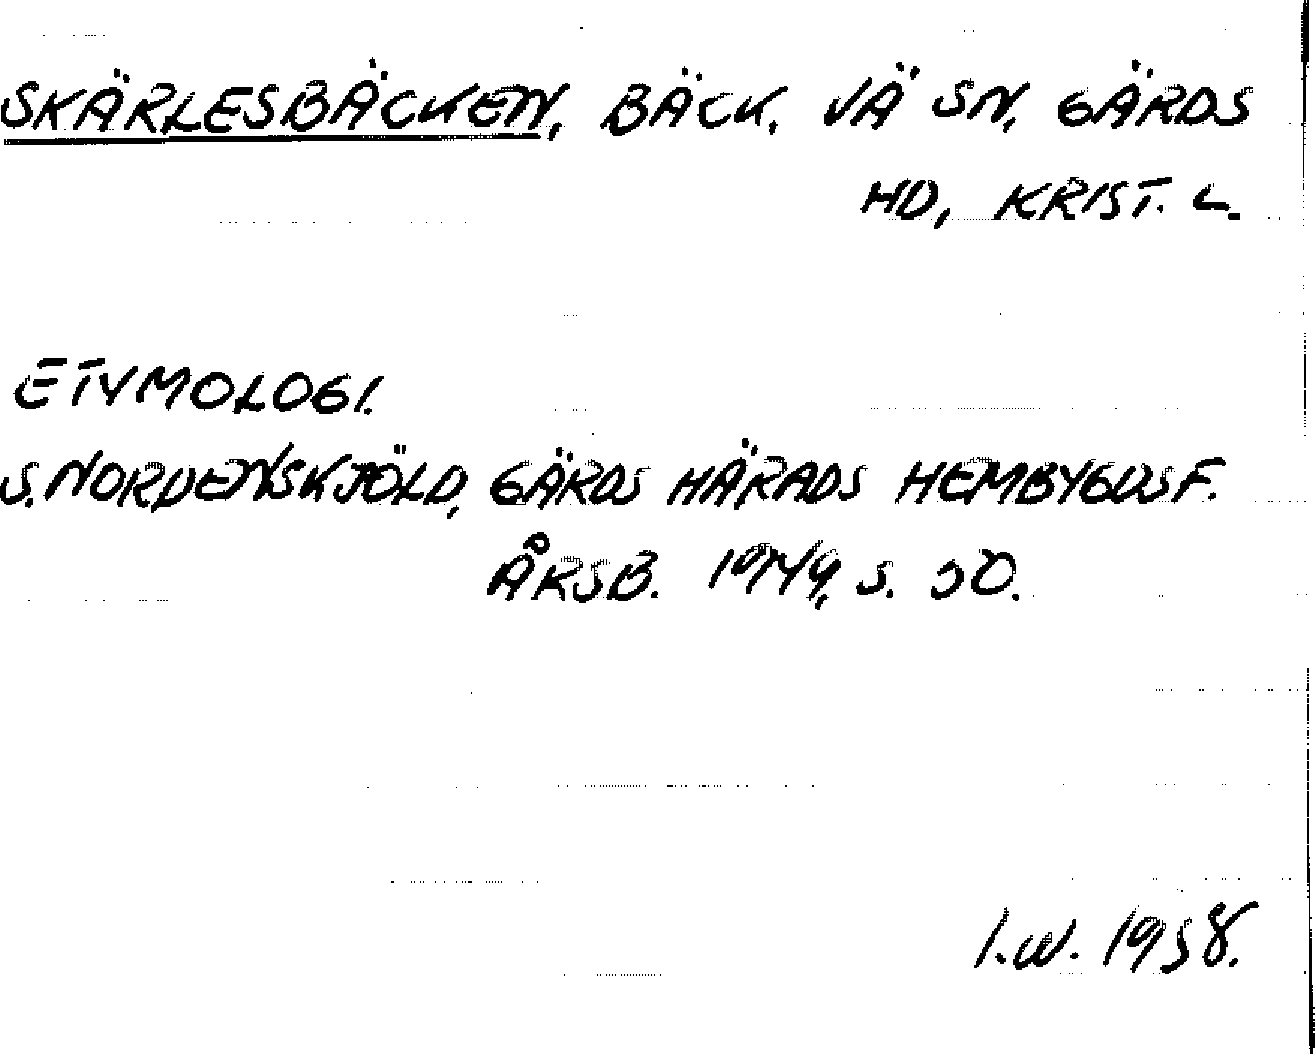 SKÄRLESBÄCKEN, BÄCK, VÄ SN, GÄRDS
HD, KRIST. L.
ETYMOLOGI.
S. NORDENSKJÖLD, GÄRDS HÄRADS HEMBYGDSF.
ÅRSB. 1949, S. 50.
I.W. 1958.